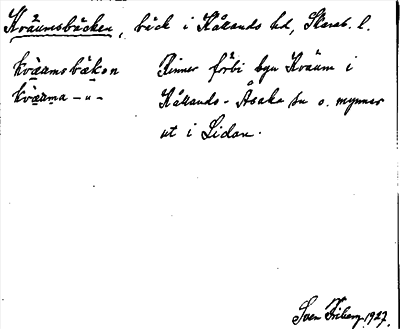 Kväumsbäcken, bäck i Kåkands hd, Skarab. l.
kväʀmsbäkon Rinner förbi byn Kväum i
kväʀma -"- Kåkands-Åsaka sn o. mynnar
ut i Lidan.
Sven Friberg 1927.